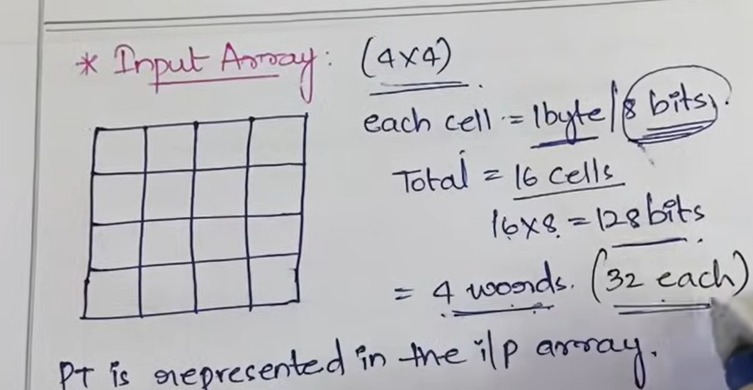 * Input Array: (4x4)
each cell = 1byte/8 bits.
Total = 16 cells
16x8 = 128 bits
= 4 words. (32 each)
PT is represented in the i/p array.